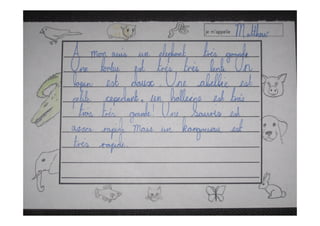 je m'appelle Matthew
A mon avis un elephant très grande
Une tortue est très très lent Un
lapin est doux. Une abeille est
petite cependant, un balleine est très
très très grande. Une souris est
assez rapide Mais un kangourou est
très rapide.